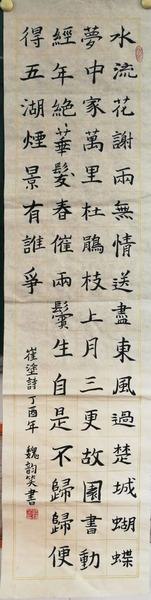 水流花謝兩無情送盡東風過楚城蝴蝶
夢中家萬里杜鵑枝上月三更故園書動
經年絕華髮春催兩鬢生自是不歸歸便
得五湖煙景有誰爭
崔塗詩丁酉年魏韵笑書